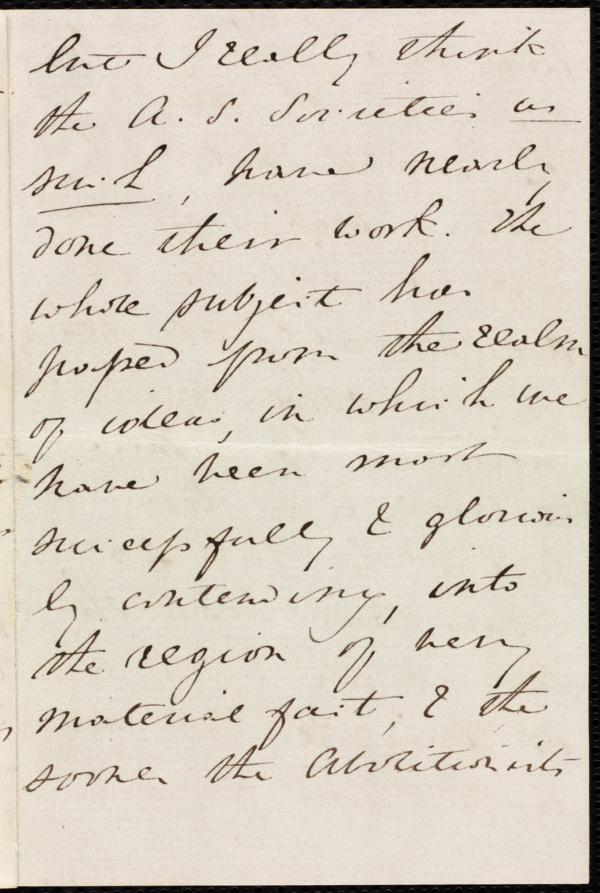 but I really think
the A. S. Societies as
such, have nearly
done their work. The
whole subject has
passed from the realm
of ideas, in which we
have been most
successfully & glorious
ly contending, into
the region of very
material fact, & the
sooner the Abolitionists